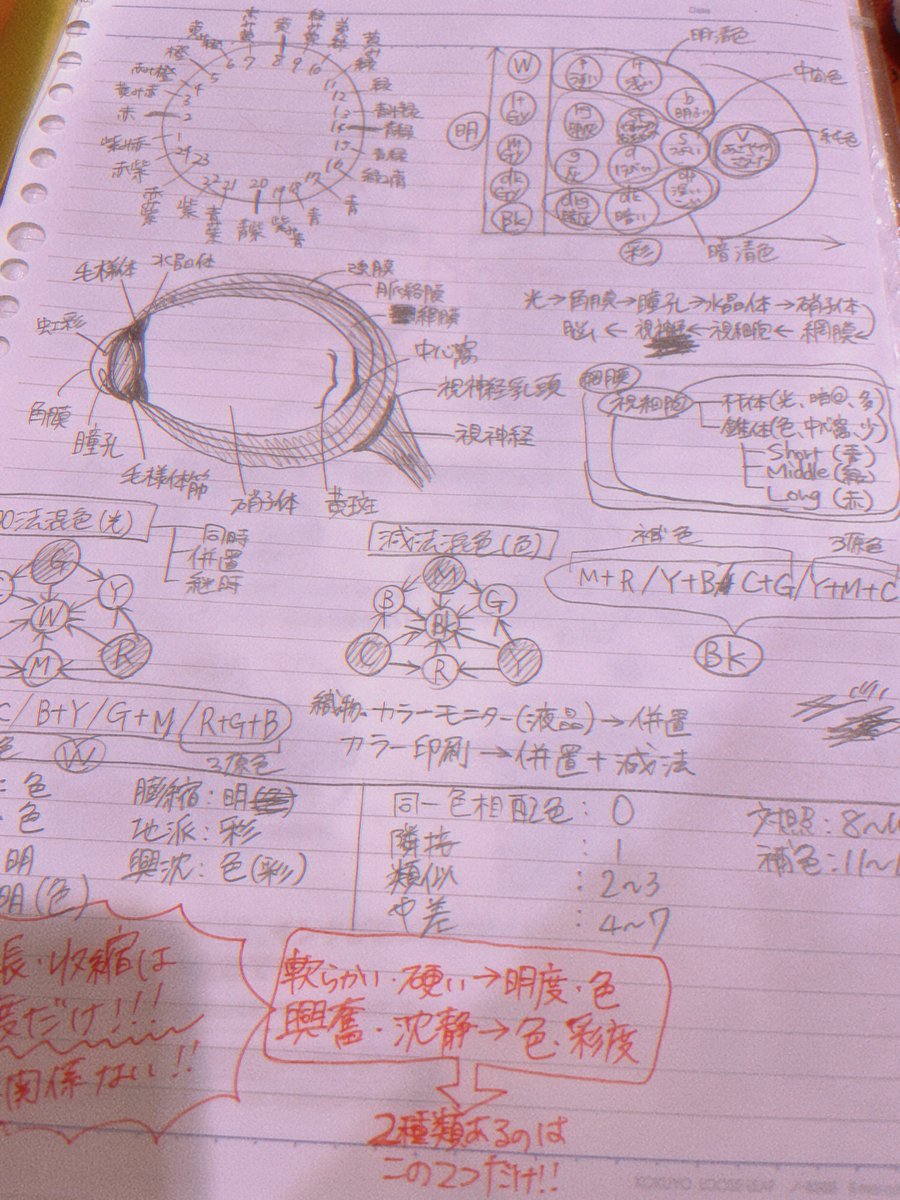 Date
明清色
中間色
純色
暗清色
明
彩
W
lt Gy
m Gy
dk Gy
Bk
p うすい
lt 浅い
b 明るい
s つよい
v
d
dp 濃い
dk 暗い
dkg 暗灰
g 灰
赤
紫みの赤
赤紫
紫
青紫
青
緑
青緑
1 2 3 4 5 6 7 8 9 10 11 12 13 14 15 16 17 18 19 20 21 22 23 24
毛様体
水晶体
虹彩
角膜
瞳孔
毛様体筋
硝子体
黄斑
強膜
脈絡膜
網膜
中心窩
視神経乳頭
視神経
光→角膜→瞳孔→水晶体→硝子体
脳←視神経←視細胞←網膜
網膜
視細胞
杆体(光、暗所、多)
錐体(色、中心窩、少)
Short (青)
Middle (緑)
Long (赤)
法混色(光)
同時
併置
継時
G
Y
W
M
R
減法混色(色)
M
B
G
Bk
C
R
Y
補色
3原色
M+R/Y+B/C+G/Y+M+C
Bk
C/B+Y/G+M/R+G+B
色
W
3原色
織物、カラーモニター(液晶)→併置
カラー印刷→併置+減法
色
色
明
明(色)
膨縮:明
地派:彩
興沈:色(彩)
同一色相配色:0
隣接:1
類似:2~3
中差:4~7
対照:8~
補色:11~
長・収縮は
度だけ!!!
関係ない!!
軟らかい・硬い→明度・色
興奮・沈静→色、彩度
2種類あるのは
この2つだけ!!